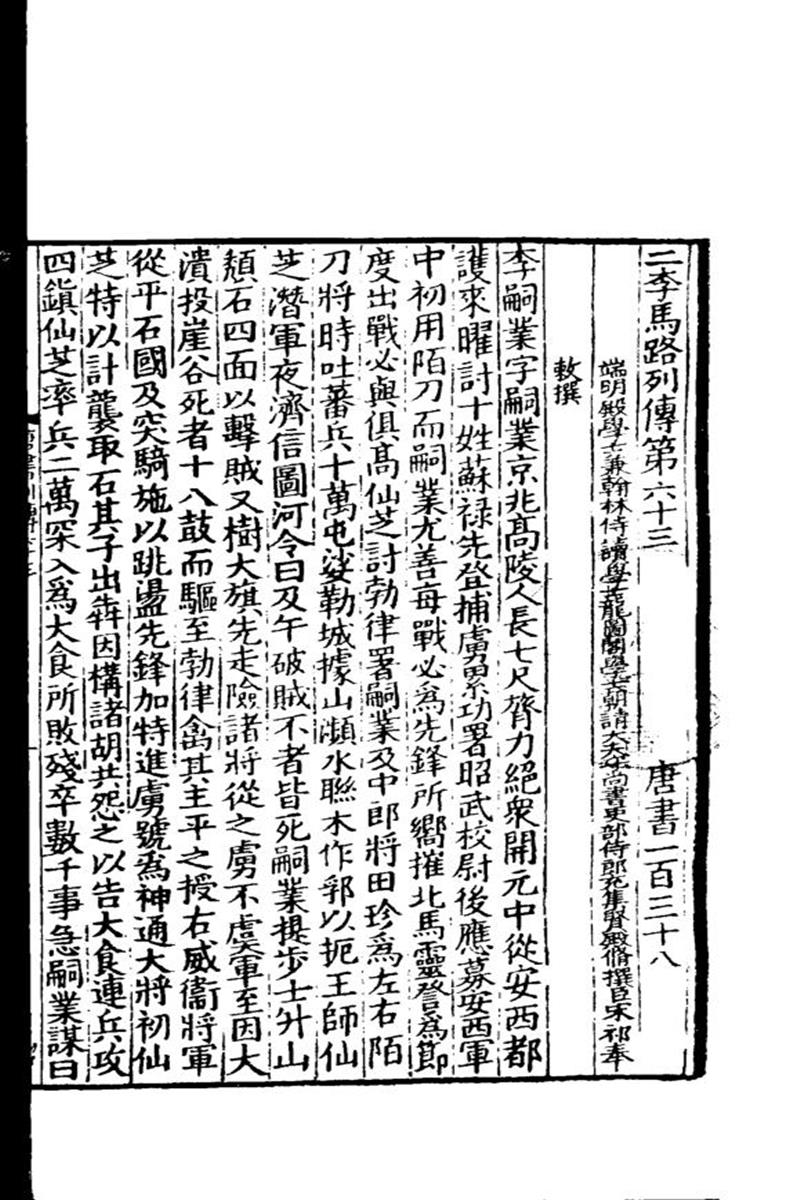 二李馬路列傳第六十三 唐書一百三十八
端明殿學士兼翰林侍讀學士龍圖閣學士朝請大夫守尚書吏部侍郎充集賢殿脩撰臣宋祁奉
敕撰
李嗣業字嗣業京兆髙陵人長七尺膂力絕衆開元中從安西都
護來曜討十姓蘇祿先登捕虜累功署昭武校尉後應募安西軍
中初用陌刀而嗣業尤善每戰必爲先鋒所嚮摧北馬靈詧爲節
度出戰必與俱髙仙芝討勃律署嗣業及中郎將田珍爲左右陌
刀將時吐蕃兵十萬屯娑勒城據山瀕水聯木作郛以扼王師仙
芝濳軍夜濟信圖河令曰及午破賊不者皆死嗣業提步士升山
頹石四面以擊賊又樹大旗先走險諸將從之虜不虞軍至因大
潰投崖谷死者十八鼓而驅至勃律禽其主平之授右威衞將軍
從平石國及突騎施以跳盪先鋒加特進虜號爲神通大將初仙
芝特以計襲取石其子出犇因構諸胡共怨之以告大食連兵攻
四鎭仙芝率兵二萬深入爲大食所敗殘卒數千事急嗣業謀曰